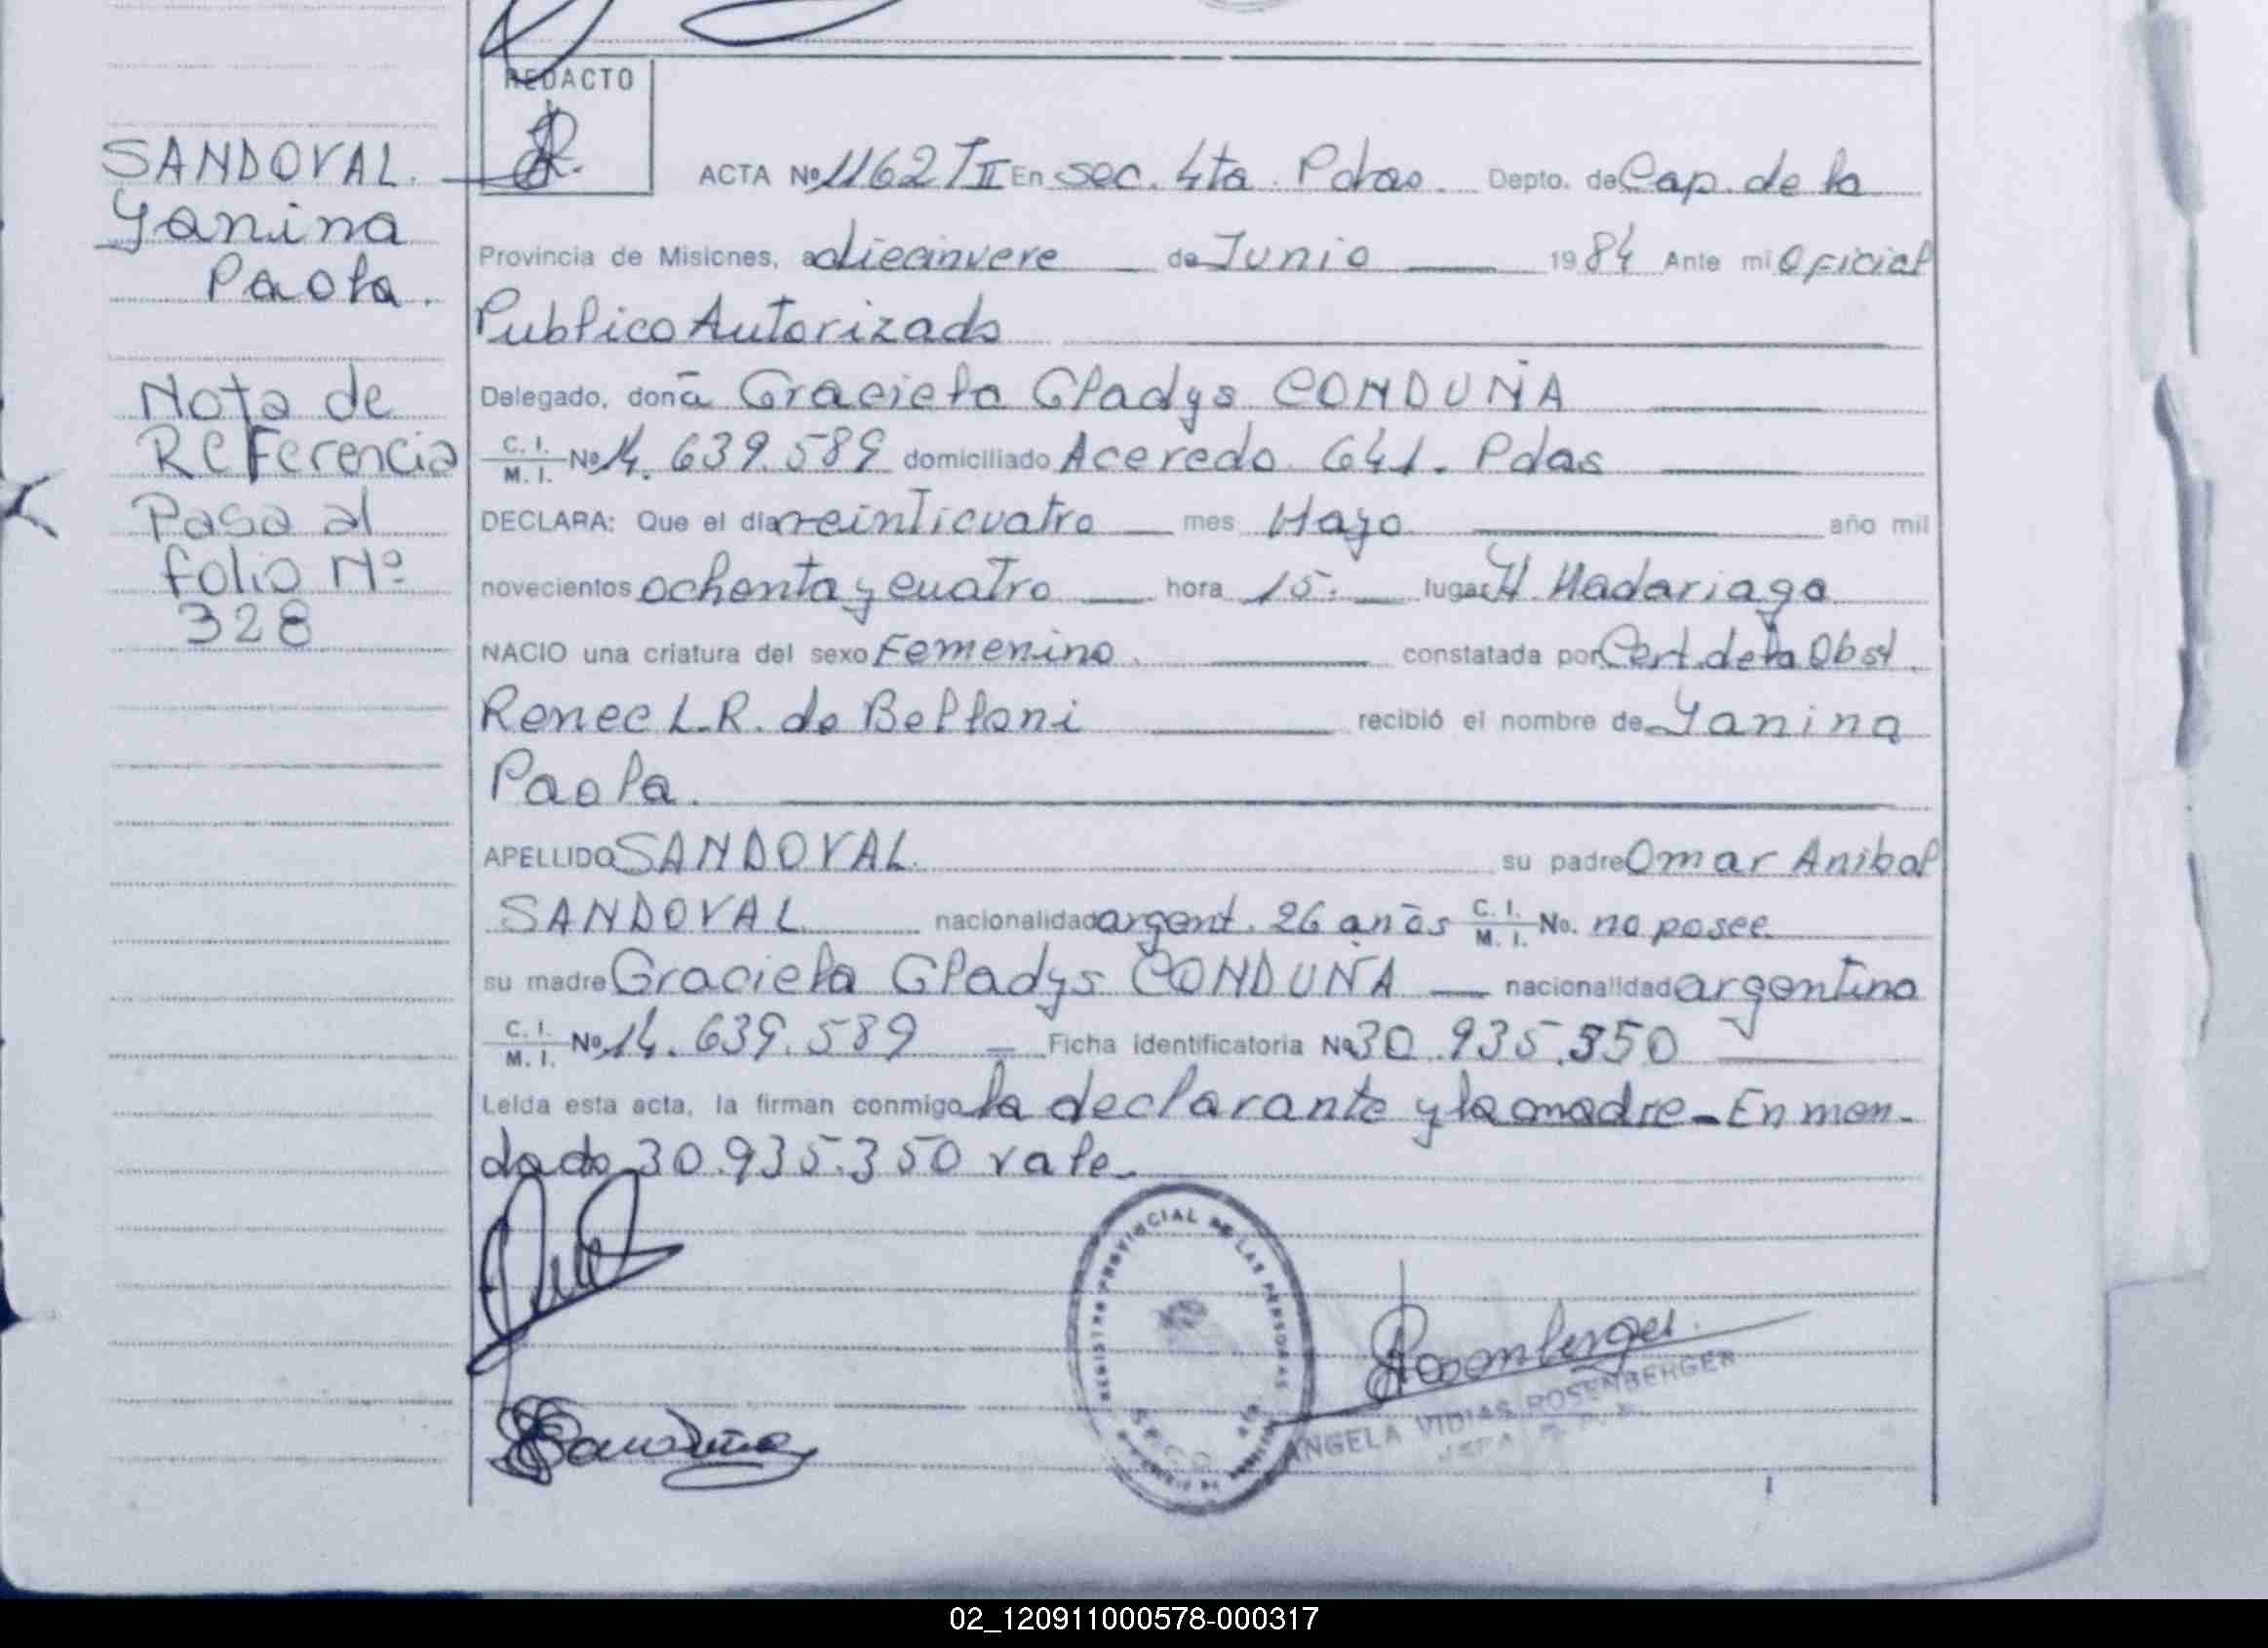 REDACTO
SANDOVAL.
Yanina
Paola.
Nota de
Referencia
Pasa al
folio Nº
328
ACTA Nº 1162 TII En sec. 4ta. Pdas. Depto. de Cap. de la
Provincia de Misiones, a diecinueve de Junio 1984 Ante mi Oficial
Publico Autorizado
Delegado, doña Graciela Gladys CONDUÑA
C. I. M. I. Nº 14.639.589 domiciliado Acevedo 641. Pdas
DECLARA: Que el día veinticuatro mes Mayo año mil
novecientos ochenta y cuatro hora 15. lugar H. Madariaga
NACIO una criatura del sexo Femenino. constatada por Cert. de la Obst.
Renee L.R. de Belloni recibió el nombre de Yanina
Paola.
APELLIDO SANDOVAL. su padre Omar Anibal
SANDOVAL nacionalidad argent. 26 años C. I. M. I. No. no posee
su madre Graciela Gladys CONDUÑA nacionalidad argentina
C. I. M. I. Nº 14.639.589 Ficha identificatoria Nº 30.935.350
Leída esta acta, la firman conmigo la declarante y la madre - Enmen-
dado 30.935.350 vale.
REGISTRO PROVINCIAL DE LAS PERSONAS
ANGELA VIDIAS ROSENBERGER
02_120911000578-000317